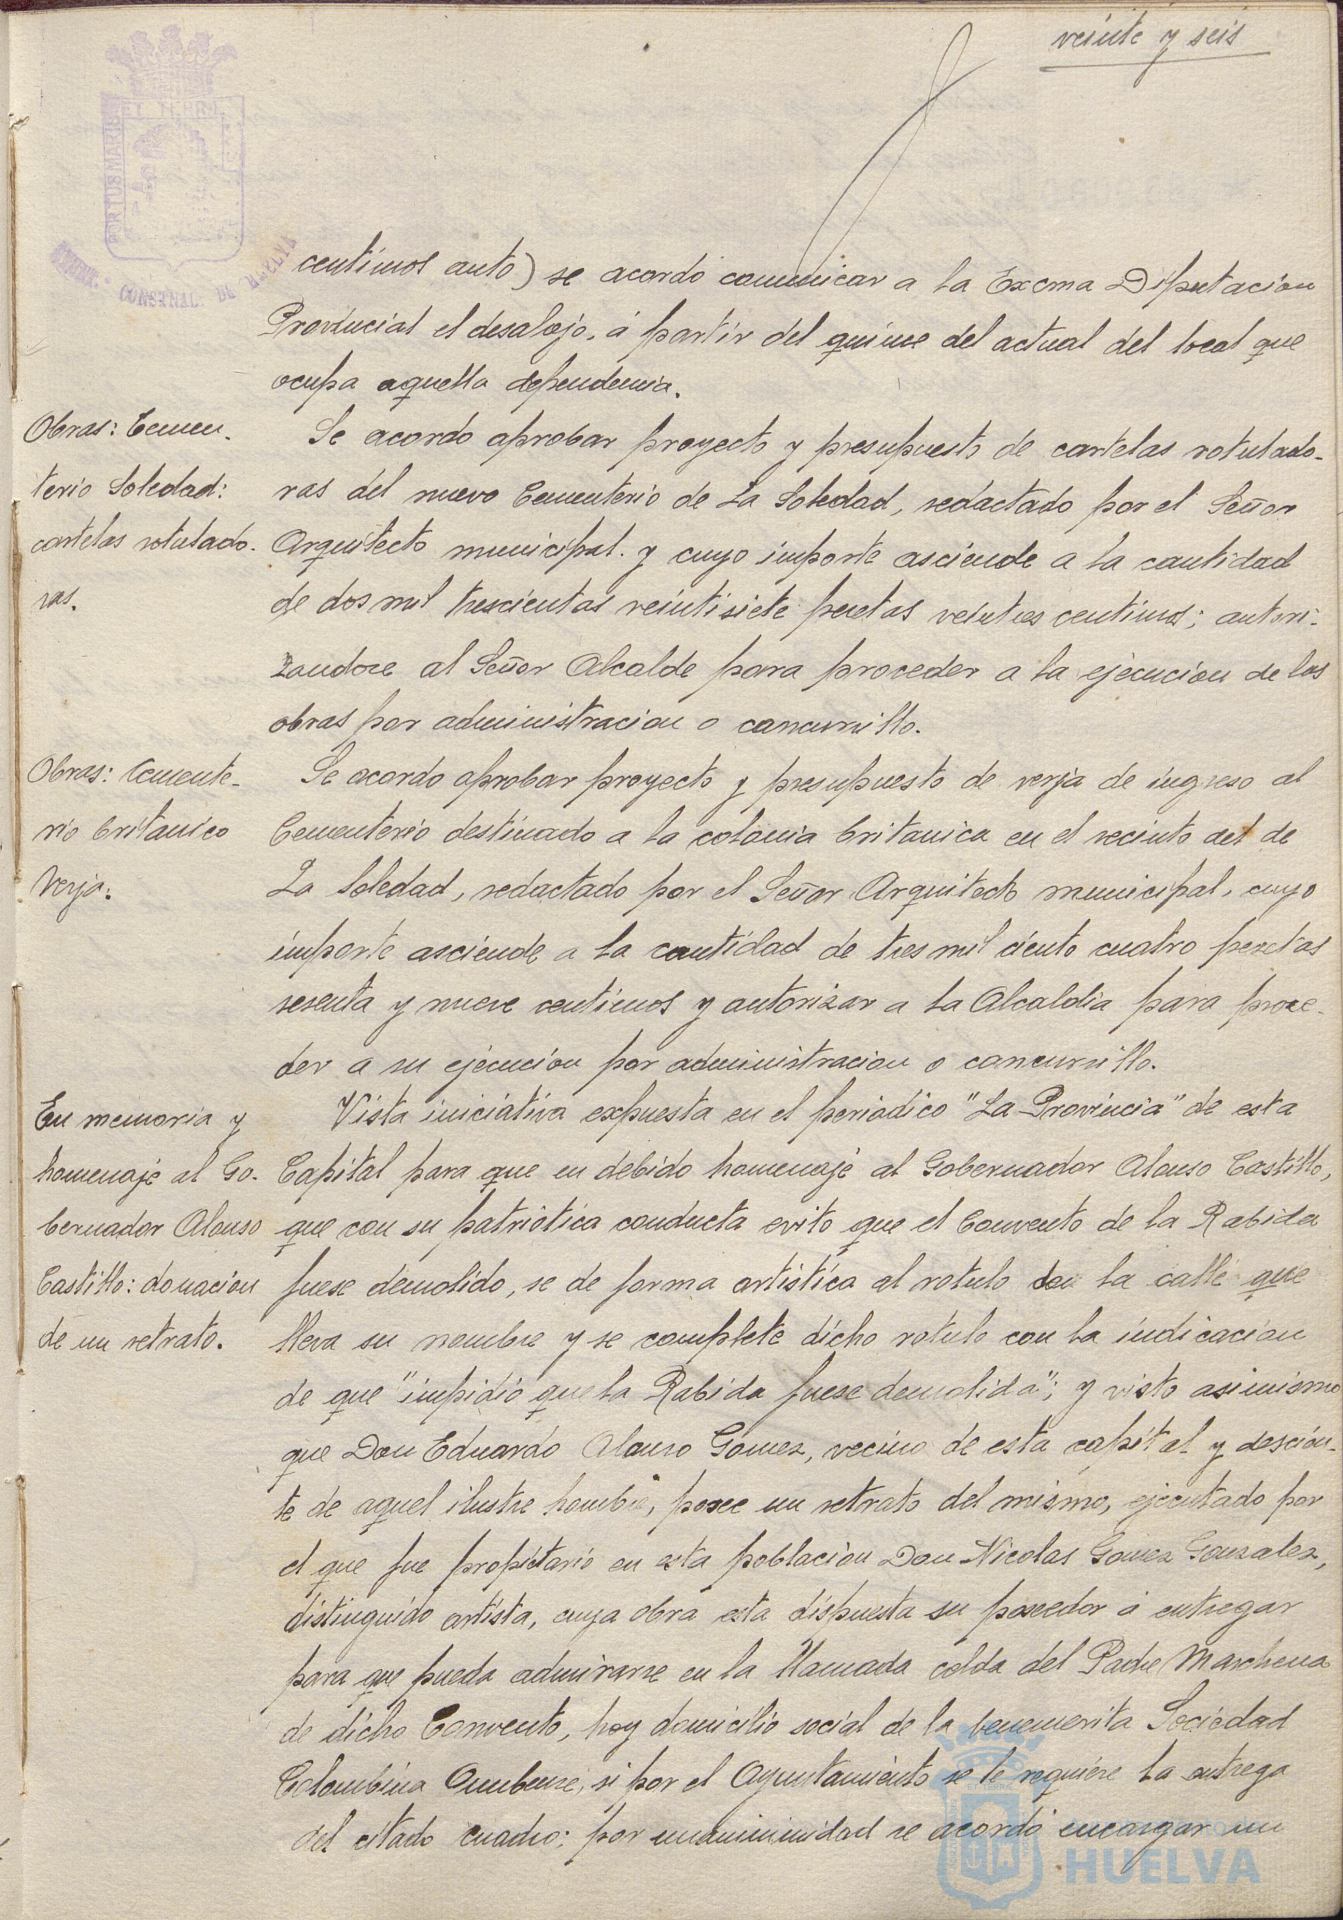 veinte y seis
PORTUS MARIS ET TERRE
CONSTNAL. DE HUELVA
centimos auto) se acordó comunicar a la Excma Diputacion
Provincial el desalojo, á partir del quince del actual del local que
ocupa aquella dependencia.
Obras: Cemen-
terio Soledad:
cartelas rotulado-
ras.
Se acordo aprobar proyecto y presupuesto de cartelas rotulado-
ras del nuevo Cementerio de La Soledad, redactado por el Señor
Arquitecto municipal. y cuyo importe asciende a la cantidad
de dos mil trescientas veintisiete pesetas veintres centimos; autori-
zandose al Señor Alcalde para proceder a la ejecucion de las
obras por administracion o concursillo.
Obras: Cemente-
rio britanico
Verja.
Se acordo aprobar proyecto y presupuesto de verja de ingreso al
Cementerio destinado a la colonia britanica en el recinto del de
La Soledad, redactado por el Señor Arquitecto municipal, cuyo
importe asciende a la cantidad de tres mil ciento cuatro pesetas
sesenta y nueve centimos y autorizar a la Alcaldia para proce-
der a su ejecucion por administracion o concursillo.
En memoria y
homenaje al Go-
bernador Alonso
Castillo: donacion
de un retrato.
Vista iniciativa expuesta en el periodico "La Provincia" de esta
Capital para que en debido homenaje al Gobernador Alonso Castillo,
que con su patriótica conducta evito que el Convento de la Rabida
fuese demolido, se de forma artística al rotulo de la calle que
lleva su nombre y se complete dicho rotulo con la indicacion
de que "impidió que la Rabida fuese demolida"; y visto asimismo
que Don Eduardo Alonso Gomez, vecino de esta capital y descien-
te de aquel ilustre hombre, posee un retrato del mismo, ejecutado por
el que fue propietario en esta poblacion Don Nicolas Gomez Gonzalez,
distinguido artista, cuya obra esta dispuesta su poseedor á entregar
para que pueda admirarse en la llamada celda del Padre Marchena
de dicho Convento, hoy domicilio social de la benemerita Sociedad
Colombina Onubense, si por el Ayuntamiento se le requiere la entrega
del citado cuadro: por unanimidad se acordó encargar un
HUELVA